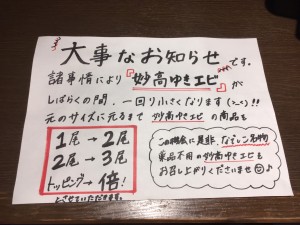 大事なお知らせです。
諸事情により『妙高ゆきエビ』が
しばらくの間、一回り小さくなります(>~<)!!
元のサイズに元るまで妙高ゆきエビの商品を
1尾→2尾
2尾→3尾
トッピング→倍!
とさせていただきます。
この機会に是非、なでしこ名物
薬品不用の妙高ゆきエビを
お召し上がりくださいませ